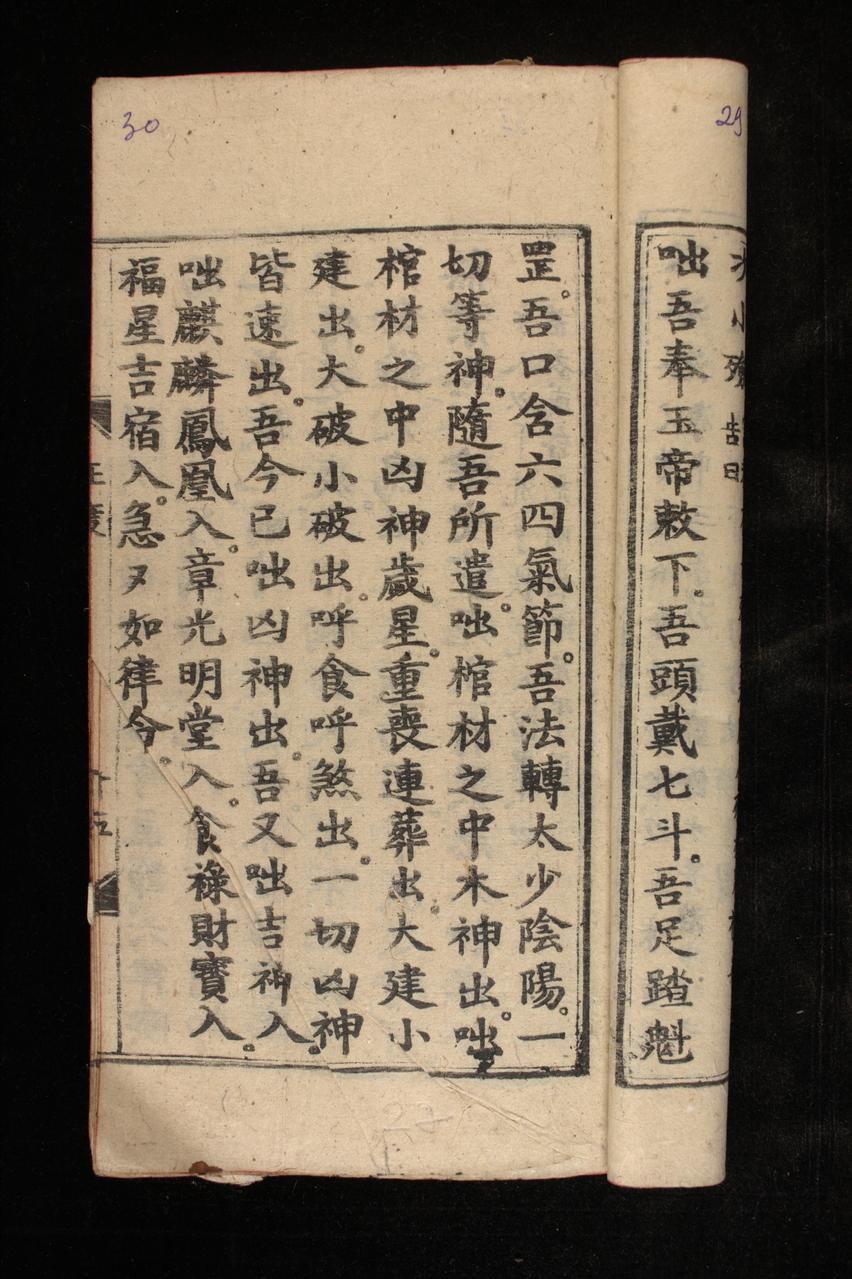 29
小殯告曰
咄吾奉玉帝敕下。吾頭戴七斗。吾足踏魁
30
罡。吾口含六四氣節。吾法轉太少陰陽。一
切等神。隨吾所遣。咄棺材之中木神出。咄
棺材之中凶神歲星。重喪連葬出。大建小
建出。大破小破出。呼食呼煞出。一切凶神
皆速出。吾今已咄凶神出。吾又咄吉神入。
咄麒麟鳳凰入。章光明堂入。食祿財寶入。
福星吉宿入。急〻如律令。